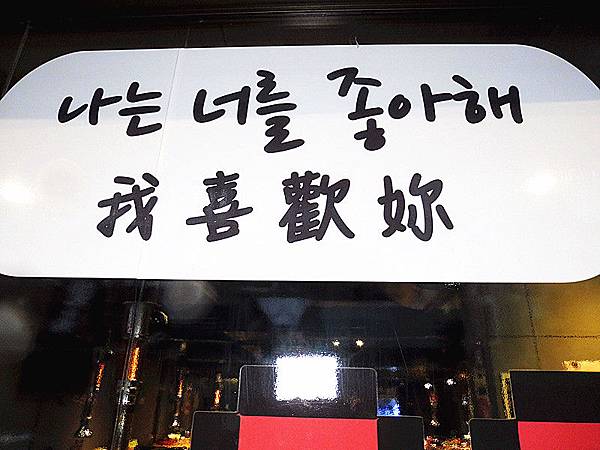 나는 너를 좋아해
我喜歡妳